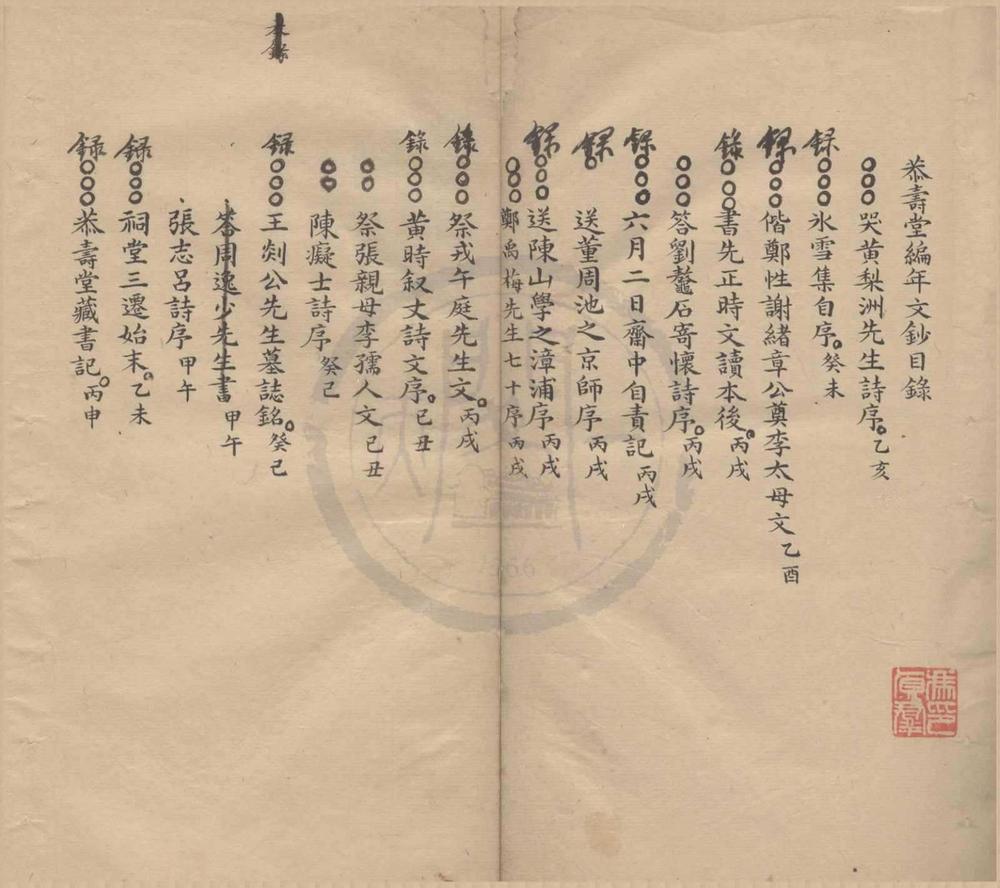 恭壽堂編年文鈔目錄
哭黄梨洲先生詩序 乙亥
録 氷雪集自序 癸未
録 偕鄭性謝緒章公奠李太母文 乙酉
錄 書先正時文讀本後 丙戌
答劉鼇石寄懷詩序 丙戌
録 六月二日齋中自責記 丙戌
録 送董周池之京師序 丙戌
録 送陳山學之漳浦序 丙戌
鄭禹梅先生七十序 丙戌
録 祭戎午庭先生文 丙戌
錄 黄時叙丈詩文序 己丑
祭張親母李孺人文 己丑
陳癡士詩序 癸巳
録 王剡公先生墓誌銘 癸巳
未錄
答周逸少先生書 甲午
張志呂詩序 甲午
録 祠堂三遷始末 乙未
録 恭壽堂藏書記 丙申
馮羣印